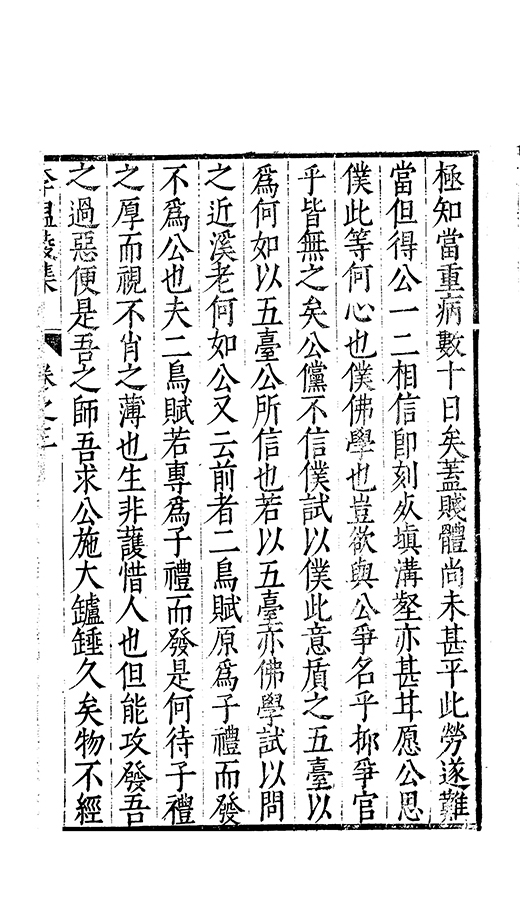 極知當重病數十日矣蓋賤體尚未甚平此勞遂難
當但得公一二相信卽刻死塡溝壑亦甚甘愿公思
僕此等何心也僕佛學也豈欲與公爭名乎抑爭官
乎皆無之矣公儻不信僕試以僕此意質之五臺以
爲何如以五臺公所信也若以五臺亦佛學試以問
之近溪老何如公又云前者二鳥賦原爲子禮而發
不爲公也夫二鳥賦若專爲子禮而發是何待子禮
之厚而視不肖之薄也生非護惜人也但能攻發吾
之過惡便是吾之師吾求公施大鑪錘久矣物不經
李温陵集
卷之三